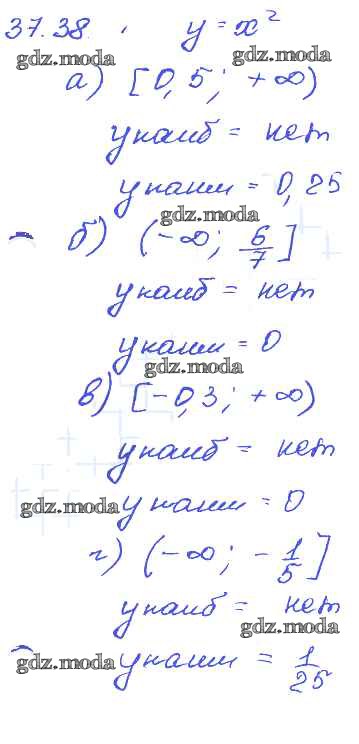 37.38. y = x²
gdz.moda gdz.moda
а) [0,5; +∞)
унаиб = нет
унаим = 0,25
gdz.moda
б) (-∞; 6/7]
унаиб = нет
унаим = 0
gdz.moda
в) [-0,3; +∞)
унаиб = нет
gdz.moda унаим = 0
г) (-∞; -1/5]
унаиб = нет
gdz.moda
gdz.moda унаим = 1/25